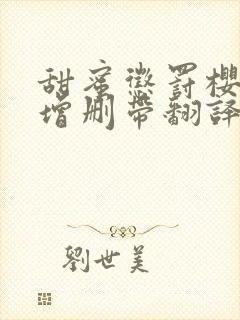 甜蜜懲罰櫻
增刪帶翻譯
劉世美